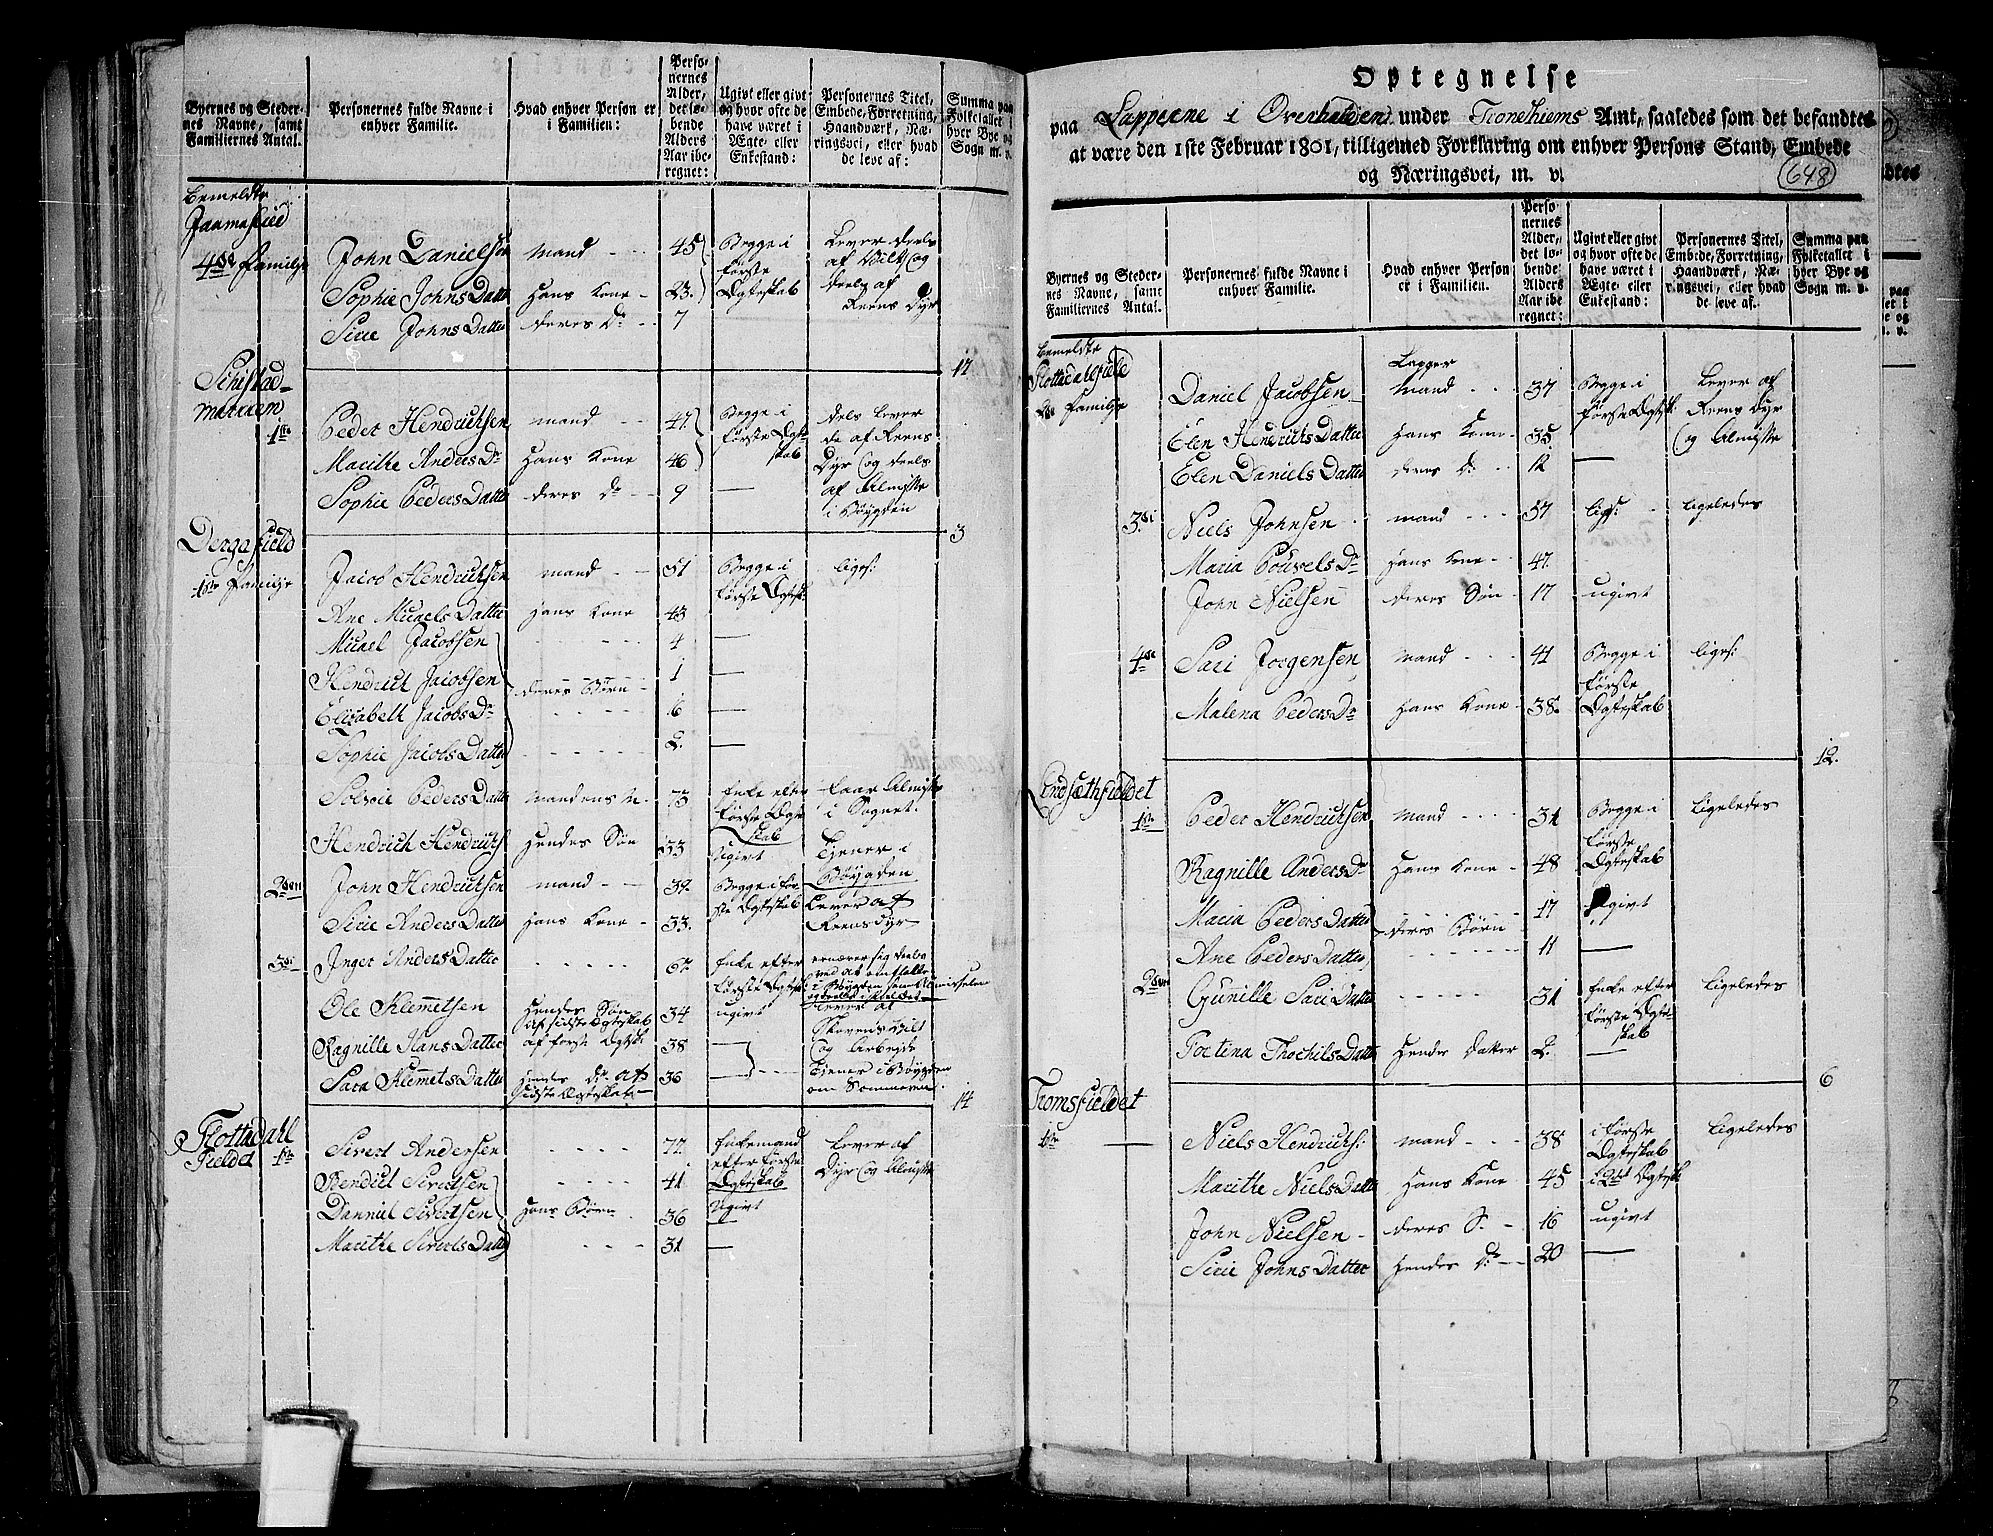 Byernes og Steder-
nes Navne, samt
Familiernes Antal.
Personernes fulde Navne i
enhver Familie.
Hvad enhver Person er
i Familien:
Perso-
nernes
Alder,
det lø-
bende
Alders
Aar ibe-
regnet:
Ugivt eller givt
og hvor ofte de
have været i
Ægte- eller
Enkestand:
Personernes Titel,
Embede, Forretning,
Haandværk, Næ-
ringsvei, eller hvad
de leve af:
Summa paa
Folketallet i
hver Bye og
Sogn m. v.
bemeldte
Jaamafield
4de Familje John Danielsen mand 45 Begge i første Ægteskab Lever deels af Vildt og deels af Reens Dyr
Sophie Johns Datter Hans Kone 23
Sirie Johns Datter deres Dr 7
17
Schistad-
marken
1ste Peder Hendrichsen mand 47 Begge i første Ægteskab dels lever de af Reens Dyr og deels af Almisse i Bøygden
Marithe Anders Dr Hans Kone 46
Sophie Peders Datter deres Dr 9 —
3
Dergafield
1ste Familje Jacob Hendrichsen mand 51 Begge i første Ægtesk: liges:
Ane Michels Datter Hans Kone 43
Michel Jacobsen 4 —
Hendrich Jacobsen deres Børn 1 —
Elisabeth Jacobs Dr 6 —
Sophie Jacobs Datter 2 —
Solvie Peders Datter mandens M. 73 Enke efter første Ægteskab Faar Almisse i Sognet.
Hendrich Hendrichs Hendes Søn 33 Ugivt Tjener i Bøygden
2den John Hendrichsen mand 39 Begge i første Ægteskab Lever af Reensdyr
Sirie Anders Datter Hans Kone 33
3die Inger Anders Datter 67 Enke efter første Ægtesk
Ole Klemetsen Hendes Søn af sidste Ægteskab 34 ugivt lever af Skovens Hilt og Arbejde
Ragnille Hans Datter af første Ægtesk: 38 — Tjener i Bøygden om Sommeren.
Sara Klemets Datter Hendes Dr af sidste Ægteskab 36 —
14
Flottadahl
Fieldet 1ste Sivert Andersen 77 Enkemand efter første Ægteskab Lever af Dyr og Almisse
Bendict Sivertsen 41 Ugivt
Danniel Sivertsen Hans Børn 36 —
Marithe Siverts Datter 31 —
Optegnelse
paa Lapperne i Overhalden under Trondhiems Amt, saaledes som det befandtes
at være den 1ste Februar 1801, tilligemed Forklaring om enhver Persons Stand, Embede
og Næringsvei, m. v.
648
Byernes og Steder-
nes Navne, samt
Familiernes Antal.
Personernes fulde Navne i
enhver Familie.
Hvad enhver Person
er i Familien.
Perso-
nernes
Alder,
det lø-
bende
Alders
Aar ibe-
regnet:
Ugivt eller givt
og hvor ofte de
have været i
Ægte- eller
Enkestand:
Personernes Titel,
Embede, Forretning,
Haandværk, Næ-
ringsvei, eller hvad
de leve af.
Summa paa
Folketallet i
hver Bye og
Sogn m. v.
bemeldte
Flottadahlfield
2de Familje Daniel Jacobsen Lapper mand 37 Begge i første Ægtesk. Lever af Reens Dyr og Almisse
Elen Hendrichs Datter Hans Kone 35
Elen Daniels Datter deres Dr 12 —
3die Niels Johnsen mand 57 ligs: ligeledes
Maria Pouvels Dr Hans Kone 47
John Nielsen deres Søn 17 ugivt
4de Sari Jorgensen mand 41 Begge i første Ægteskab liges:
Malena Peders Dr Hans Kone 38
12.
Lindsæthfieldet
1ste Peder Hendrichsen mand 34 Begge i første Ægteskab ligeledes
Ragnille Anders Dr Hans Kone 48
Maria Peders Datter deres Børn 17 Ugivt
Ane Peders Datter 11 —
2den Gunille Sari Datter 31 Enke efter første Ægteskab ligeledes
Portena Thochils Datter Hendes Datter 2. —
6
Tromsfieldet
1ste — Niels Hendrichs: mand 38 i første Ægteskab ligeledes
Marithe Niels Datter Hans Kone 45 i 2det Ægtesk
John Nielsen deres S. 16 ugivt
Sirie Johns Datter Hendes Dr 20 —